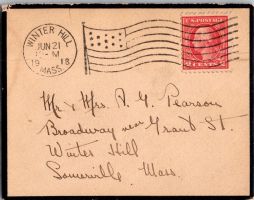 WINTER HILL
JUN 21
M
19 18
MASS.
U.S. POSTAGE
2 CENTS 2
Mr & Mrs. A. G. Pearson
Broadway near Grant St.
Winter Hill
Somerville Mass.